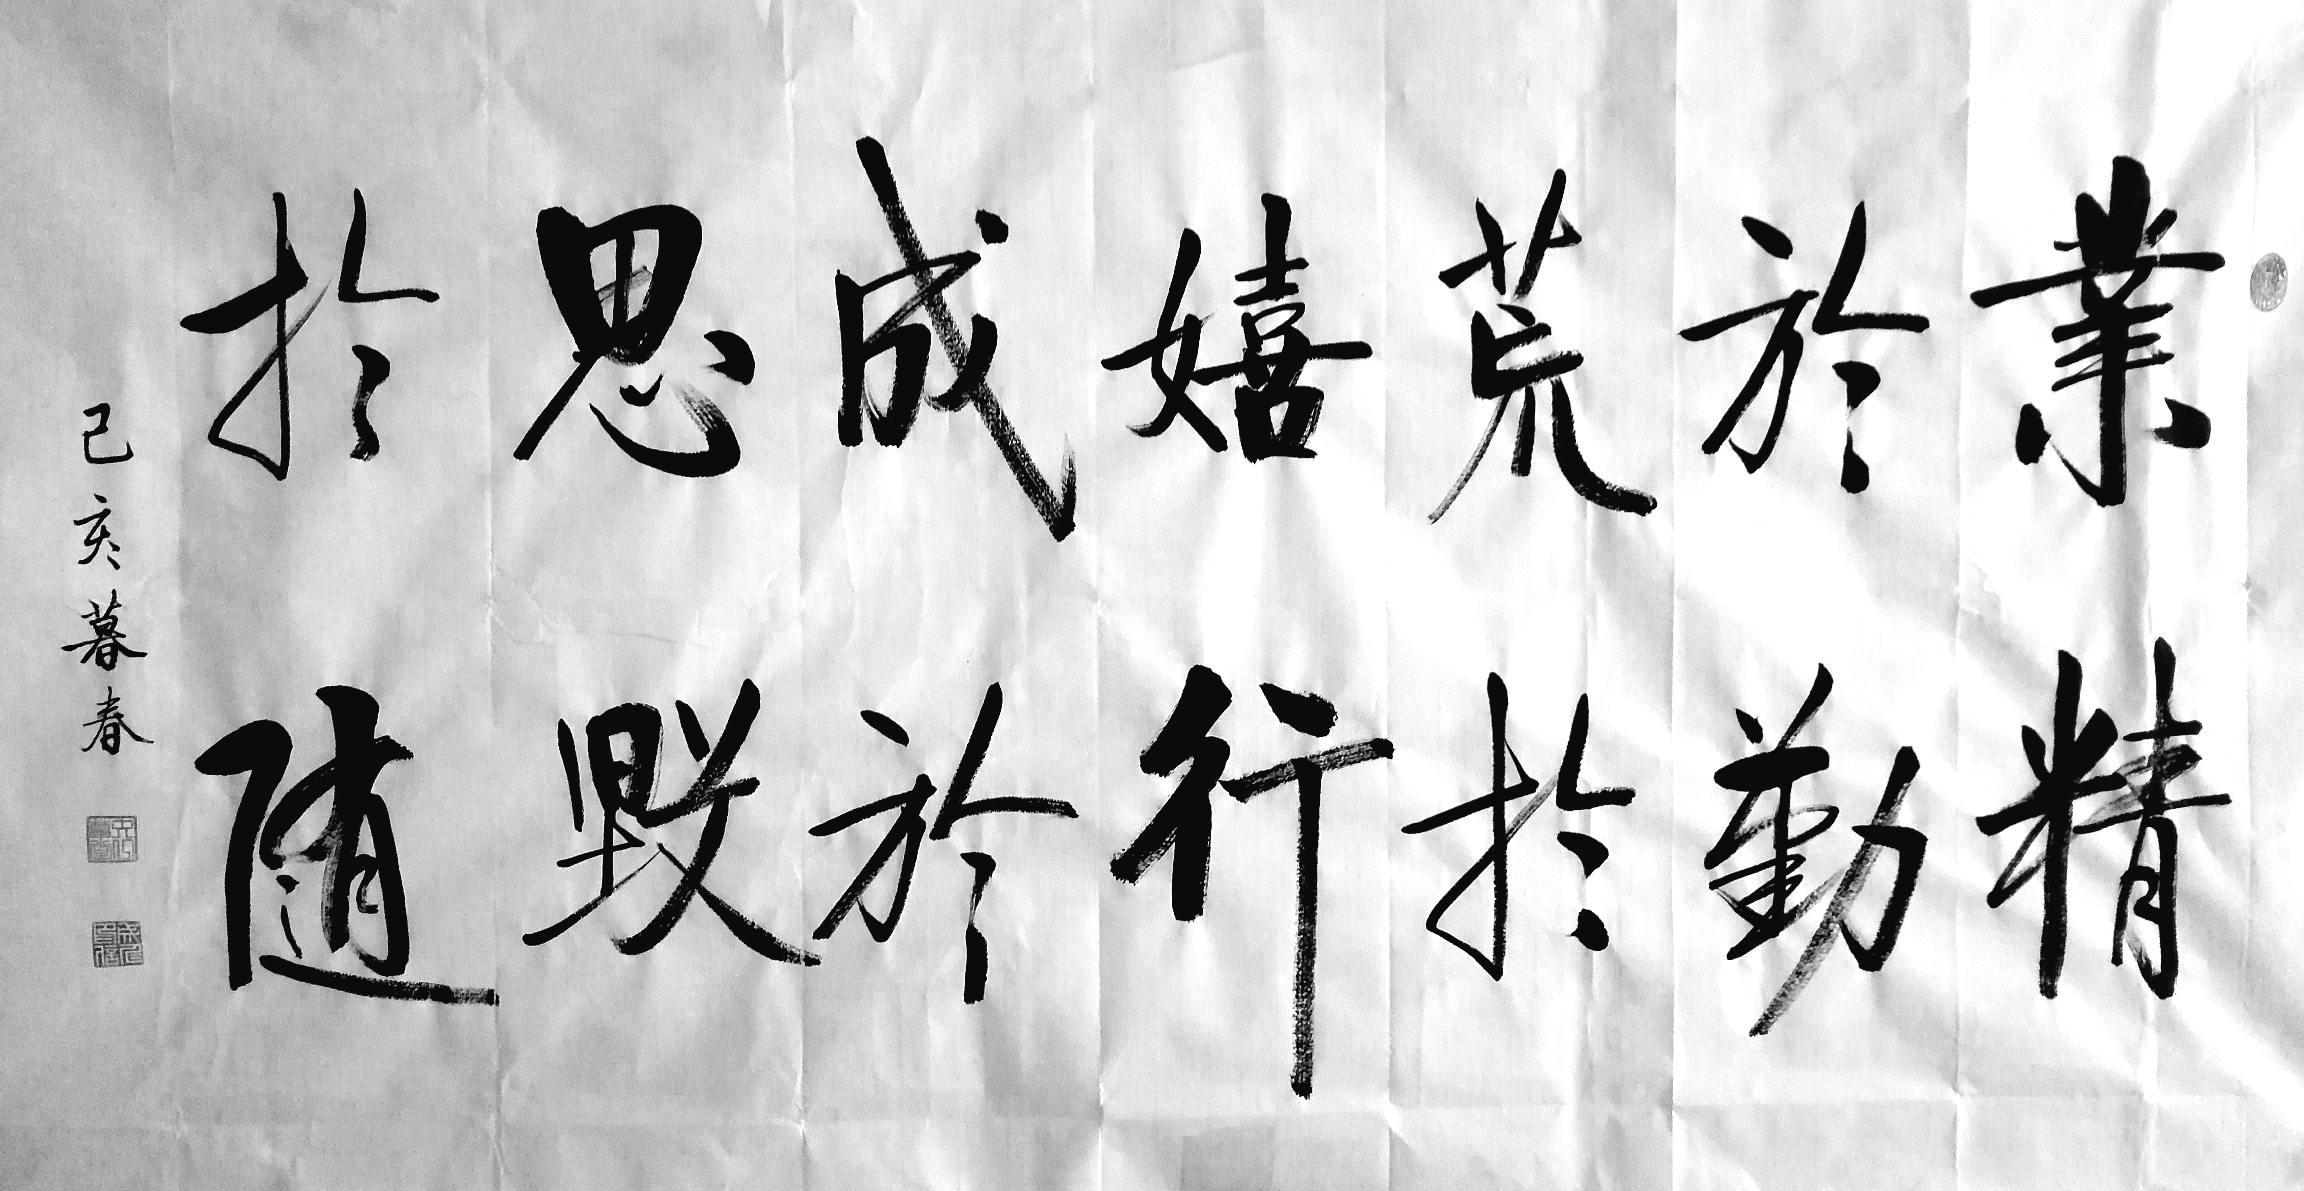 業精
於勤
荒於
嬉行
成於
思毁
於随
己亥暮春